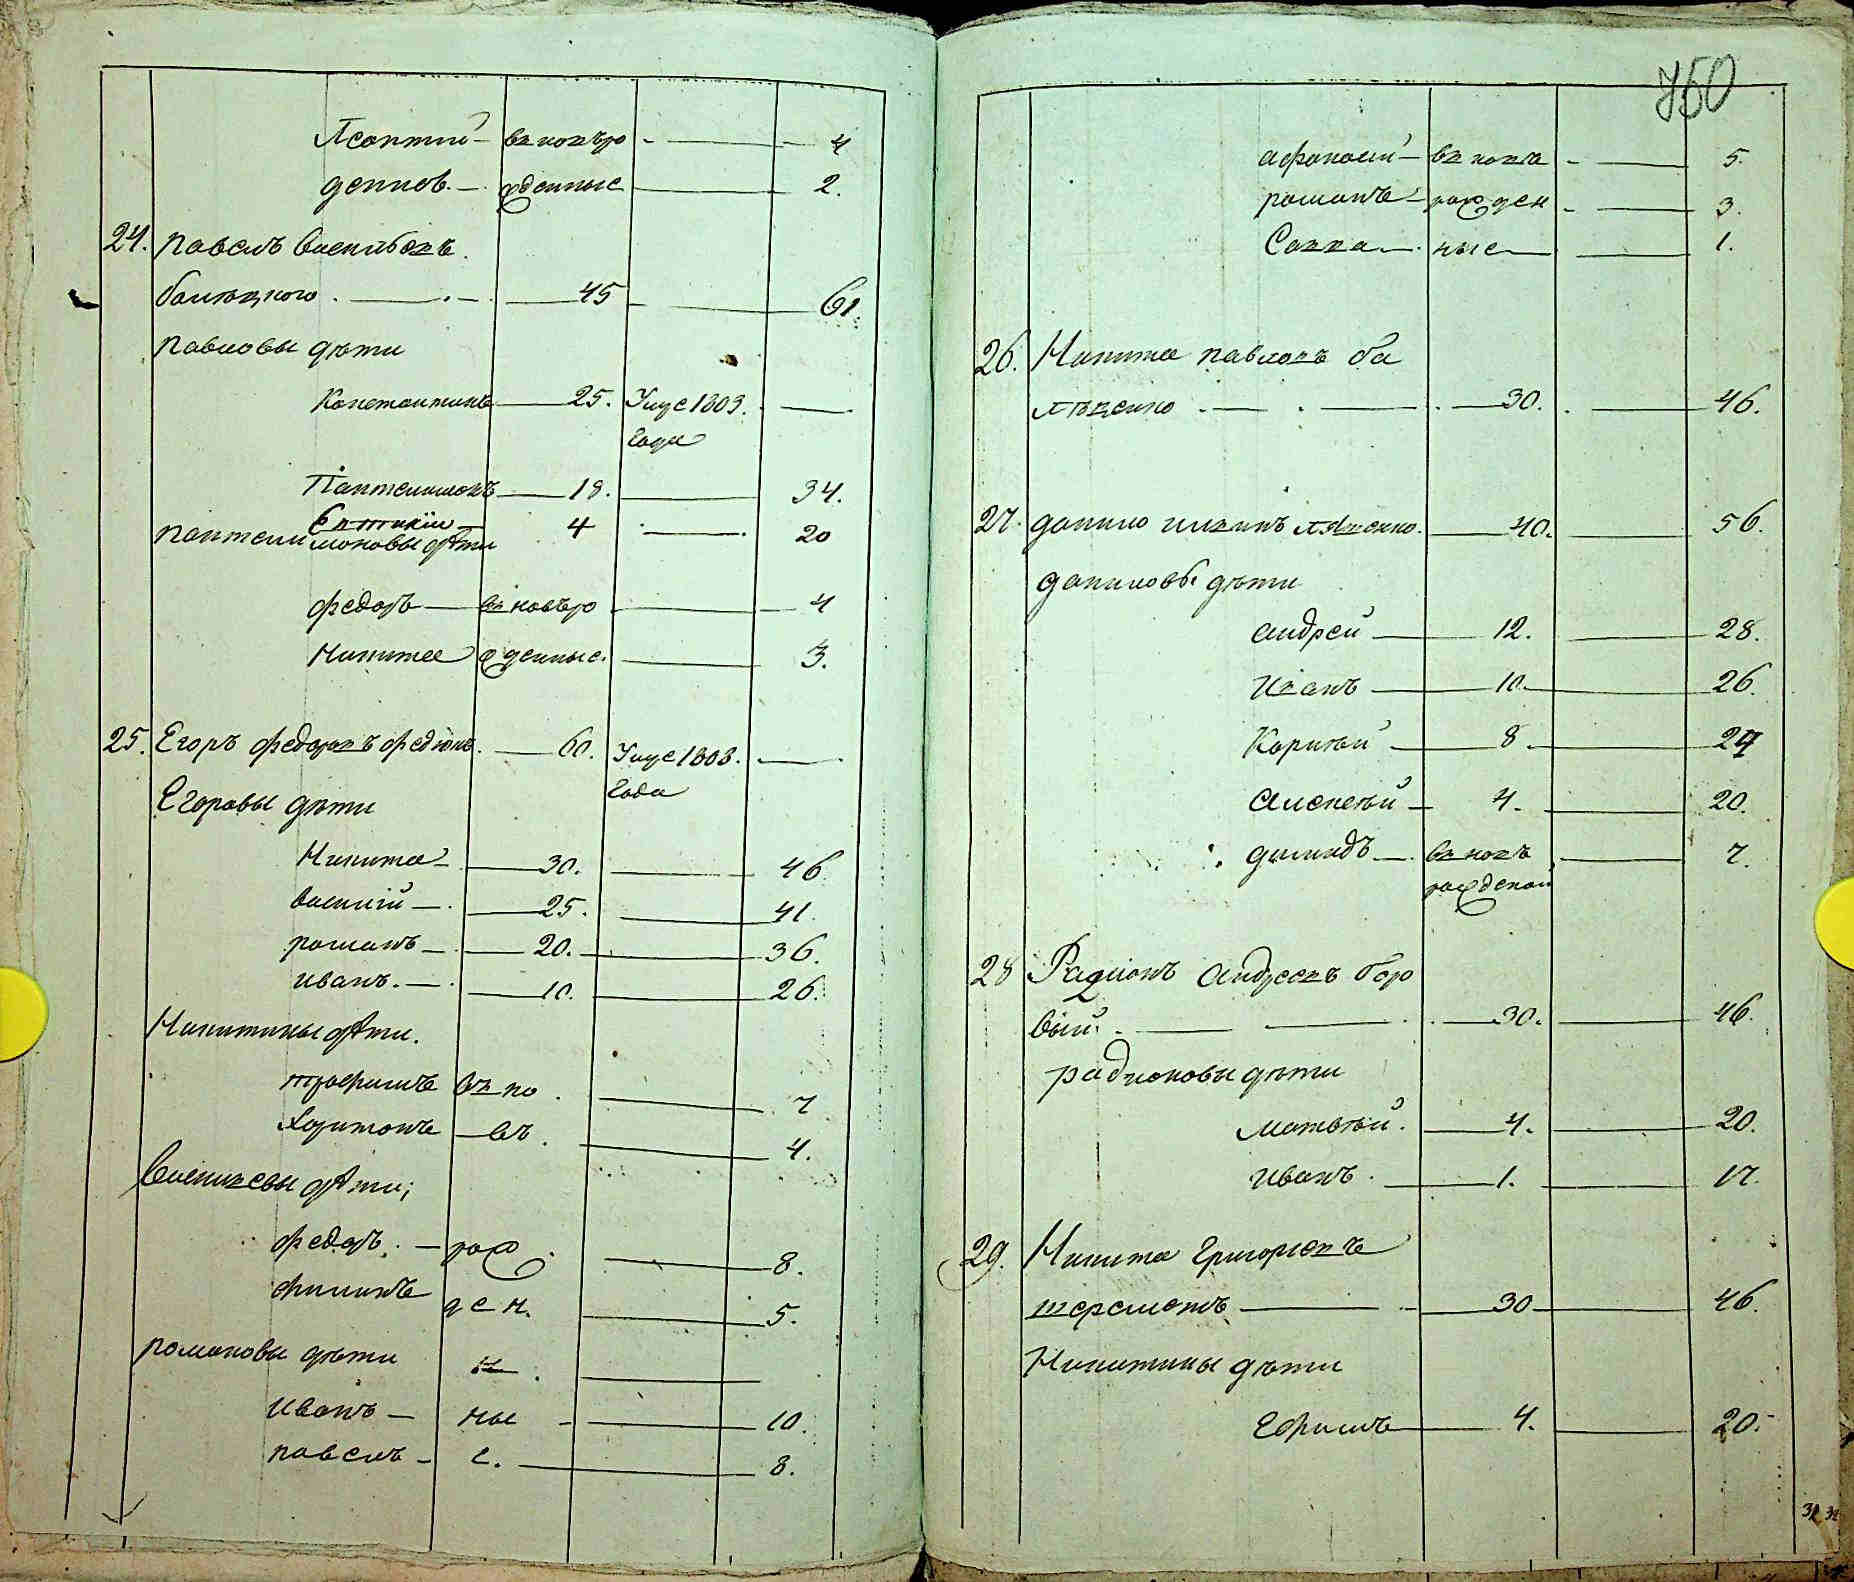 Леонтий - въ новъро - — 4
денисъ - жденные — 2.
24. павелъ васильевъ
балецкого — 45 — 61.
павловы дѣти
Константинъ — 25. Умре 1803. —
года
Пантелимонъ — 18. — 34.
Евтихiи — 4 — 20
пантелимоновы дѣти
федоръ — въ новъро — 4
Никита жденные. — 3.
25. Егоръ федоровъ — 60. Умре 1803. —
года
Егоровы дѣти
Никита — 30. — 46
василiй — 25. — 41.
романъ — 20. — 36.
иванъ. — 10. — 26.
Никитины дѣти.
трофимъ въ но — 7
Харитонъ — въ. — 4.
Васильевы дѣти;
федоръ. — рож. — 8.
филипъ ден. — 5.
романовы дѣти н. —
иванъ — ны - — 10.
павелъ — е. — 8.
750
афонасий — въ новъ - — 5.
романъ — рожден - — 3.
Савва — ные — 1.
26. Никита павловъ ба
— 30. — 46.
27. данило — 40. — 56.
даниловы дѣти
андрей — 12. — 28.
Иванъ — 10. — 26.
Корнѣй — 8. — 24
алексѣй — 4. — 20.
демидъ — въ новъ — 7.
рожденой
28 Радионъ андреевъ боро
вый. — 30. — 46.
радионовы дѣти
матвѣй. — 4. — 20.
иванъ. — 1. — 17.
29. Никита григорьевъ
шереметъ — 30 — 46.
Никитины дѣти
Ефимъ — 4. — 20.